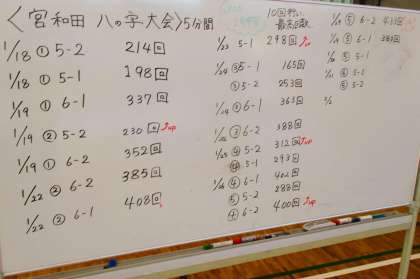 〈宮和田 八の字大会〉5分間
1/18 ① 5-2 214回
1/18 ① 5-1 198回
1/19 ① 6-1 337回
1/19 ② 5-2 230回 up
1/19 ① 6-2 352回
1/22 ② 6-2 385回
1/22 ② 6-1 408回
10回
1/23 5-1 298回
1/24 5-1 165回
5-2 253回
6-1 363回
③ 6-2 388回
④ 5-2 312回 up
5-1 293回
④ 6-1 402回
⑤ 5-2 288回
6-2 400回 up
⑤ 6-2
⑤ 6-1 383回
⑤ 5-1
⑥ 5-2